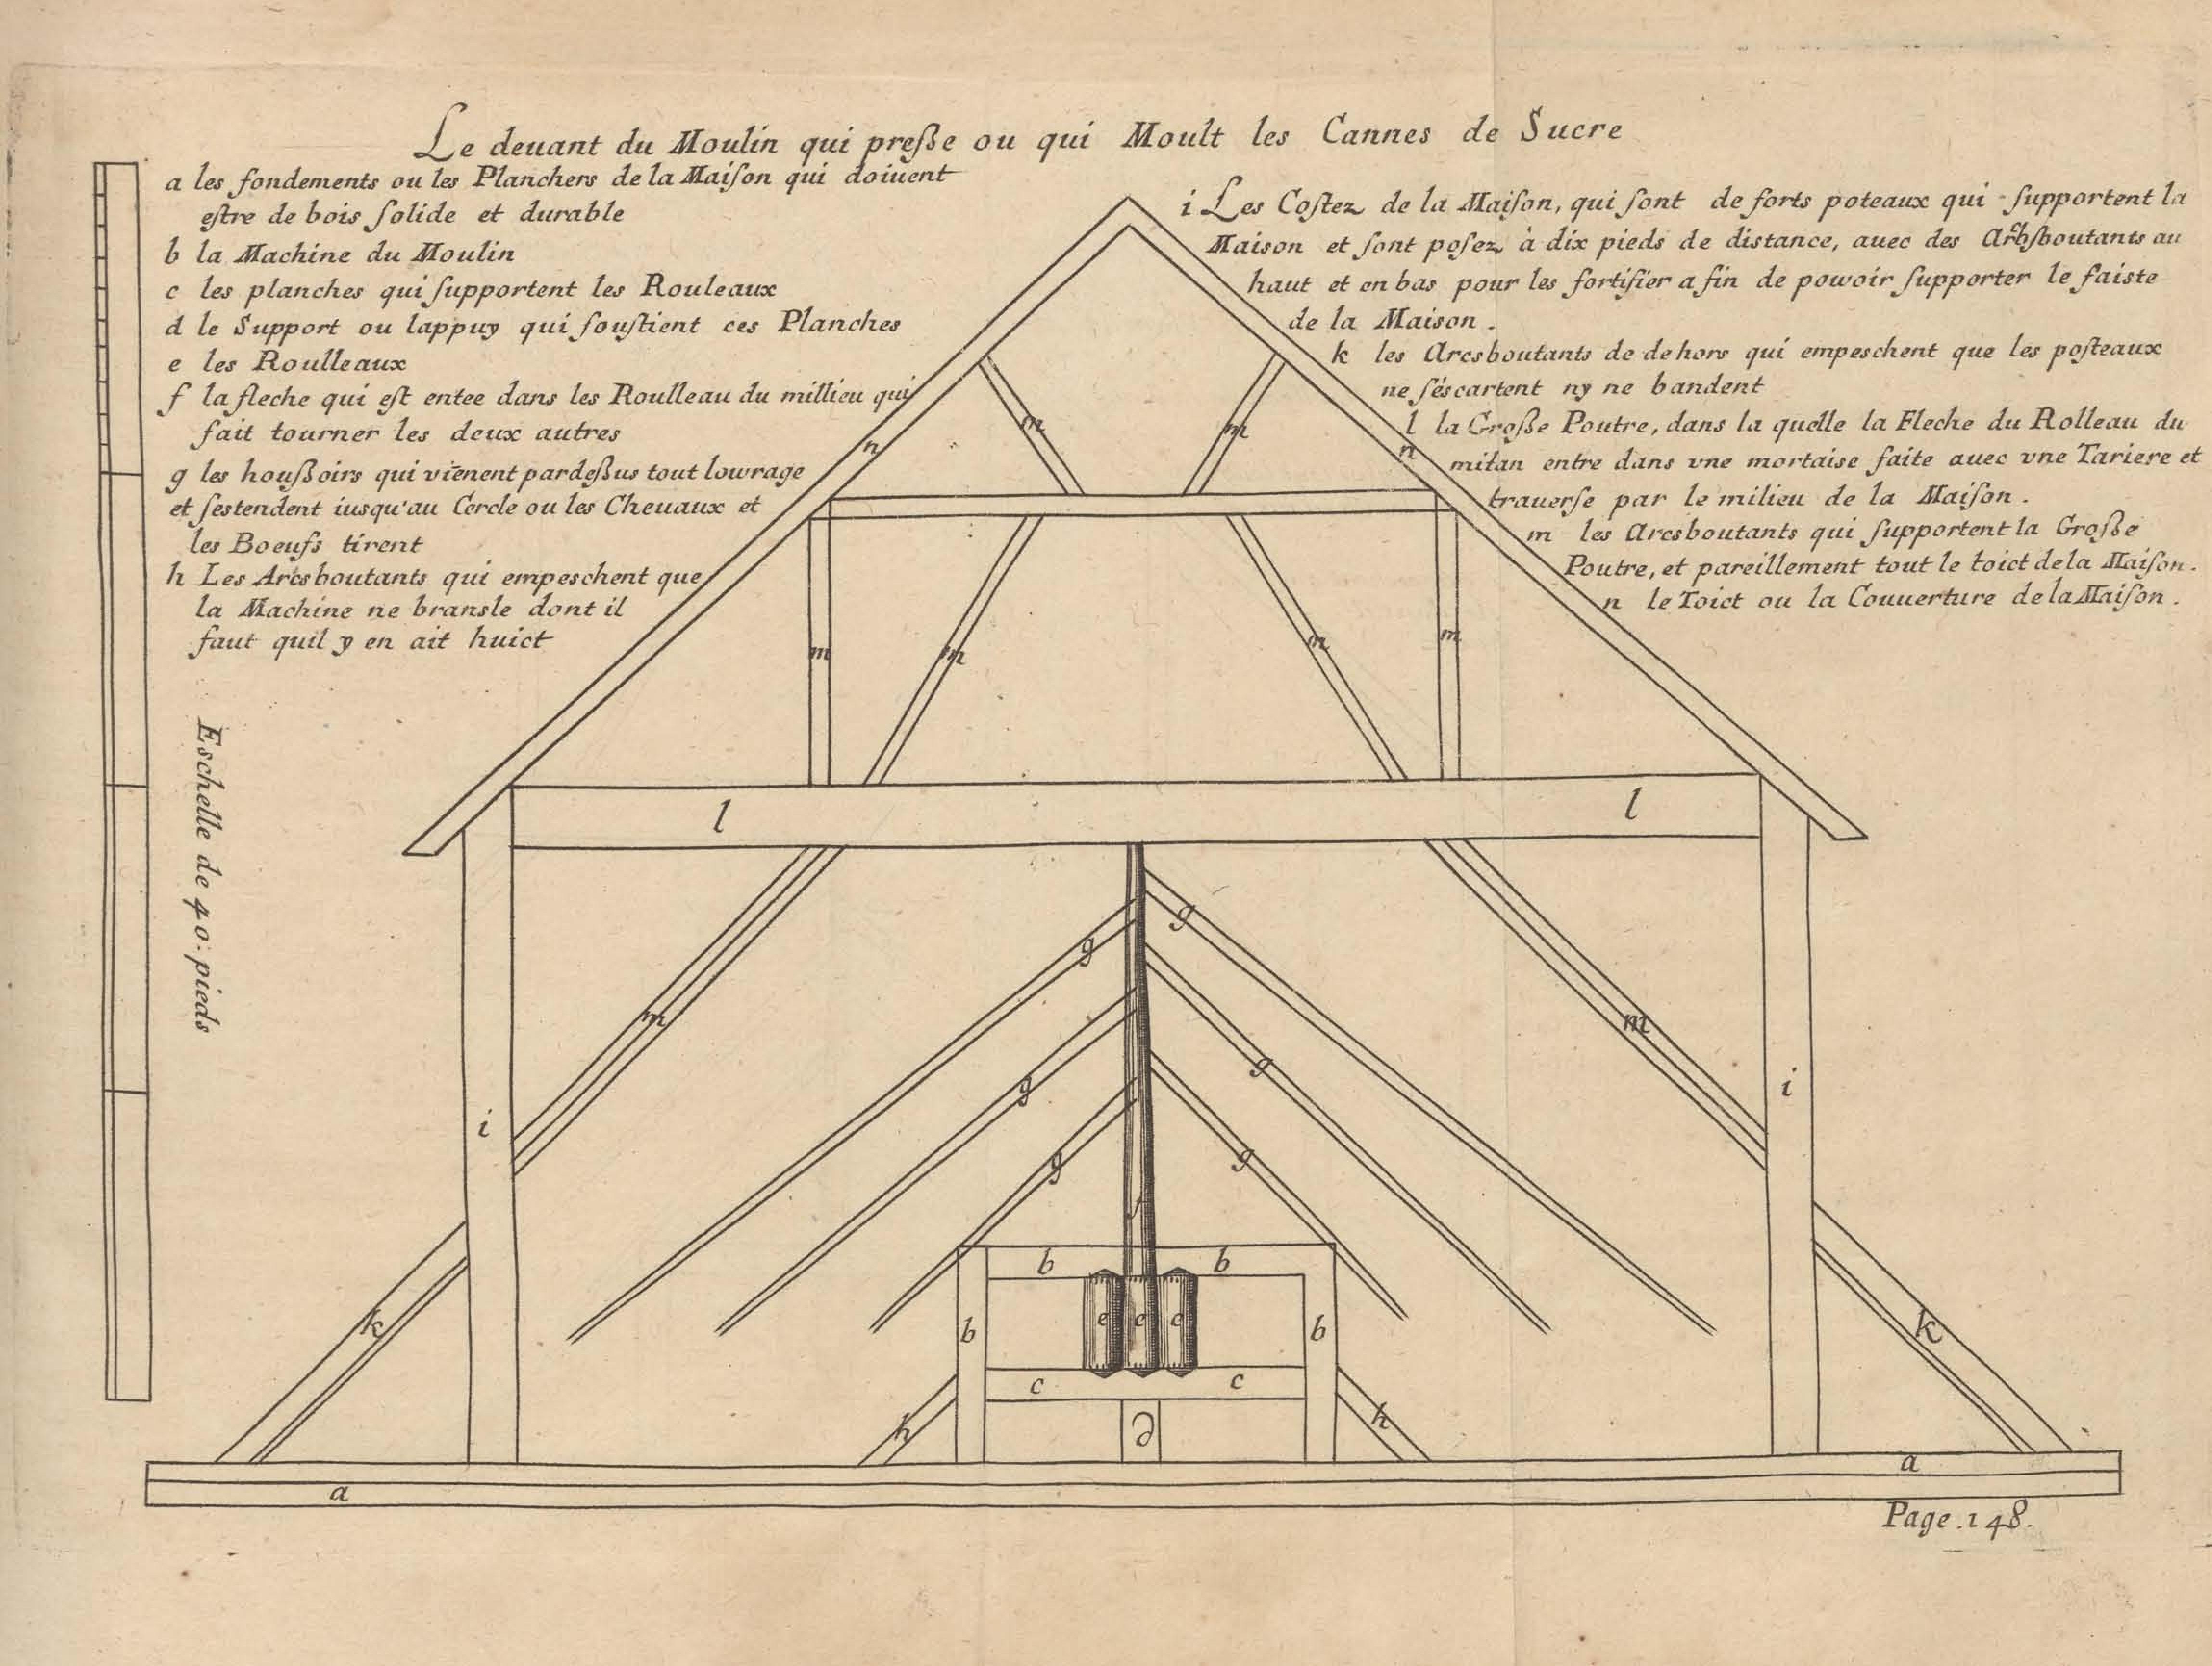 Le deuant du Moulin qui preſße ou qui Moult les Cannes de Sucre
a les fondements ou les Planchers de la Maiſon qui doiuent
eſtre de bois ſolide et durable
b la Machine du Moulin
c les planches qui ſupportent les Rouleaux
d le Support ou lappuy qui ſouſtient ces Planches
e les Roulleaux
f la fleche qui eſt entee dans les Roulleau du millieu qui
fait tourner les deux autres
g les houßoirs qui viēnent pardeßus tout lowrage
et ſestendent iusqu'au Cercle ou les Cheuaux et
les Boeufs tirent
h Les Arcsboutants qui empeschent que
la Machine ne bransle dont il
faut quil y en ait huict
i Les Coſtez de la Maiſon, qui ſont de forts poteaux qui ſupportent la
Maison et ſont poſez à dix pieds de distance, auec des Arcsboutants au
haut et en bas pour les fortifier a fin de powoir ſupporter le faiste
de la Maison.
k les Arcsboutants de dehors qui empeschent que les poſteaux
ne ſéscartent ny ne bandent
l la Große Poutre, dans la quelle la Fleche du Rolleau du
milan entre dans vne mortaise faite auec vne Tariere et
trauerſe par le milieu de la Maiſon.
m les Arcsboutants qui ſupportent la Große
Poutre, et pareillement tout le toict de la Maiſon.
n le Toict ou la Couuerture de la Maiſon.
Eschelle de 40. pieds
n
m
m
n
m
m
m
m
l
l
g
g
m
m
g
g
i
i
g
g
f
b
b
k
b
e
e
e
b
k
c
c
h
d
h
a
a
Page.148.